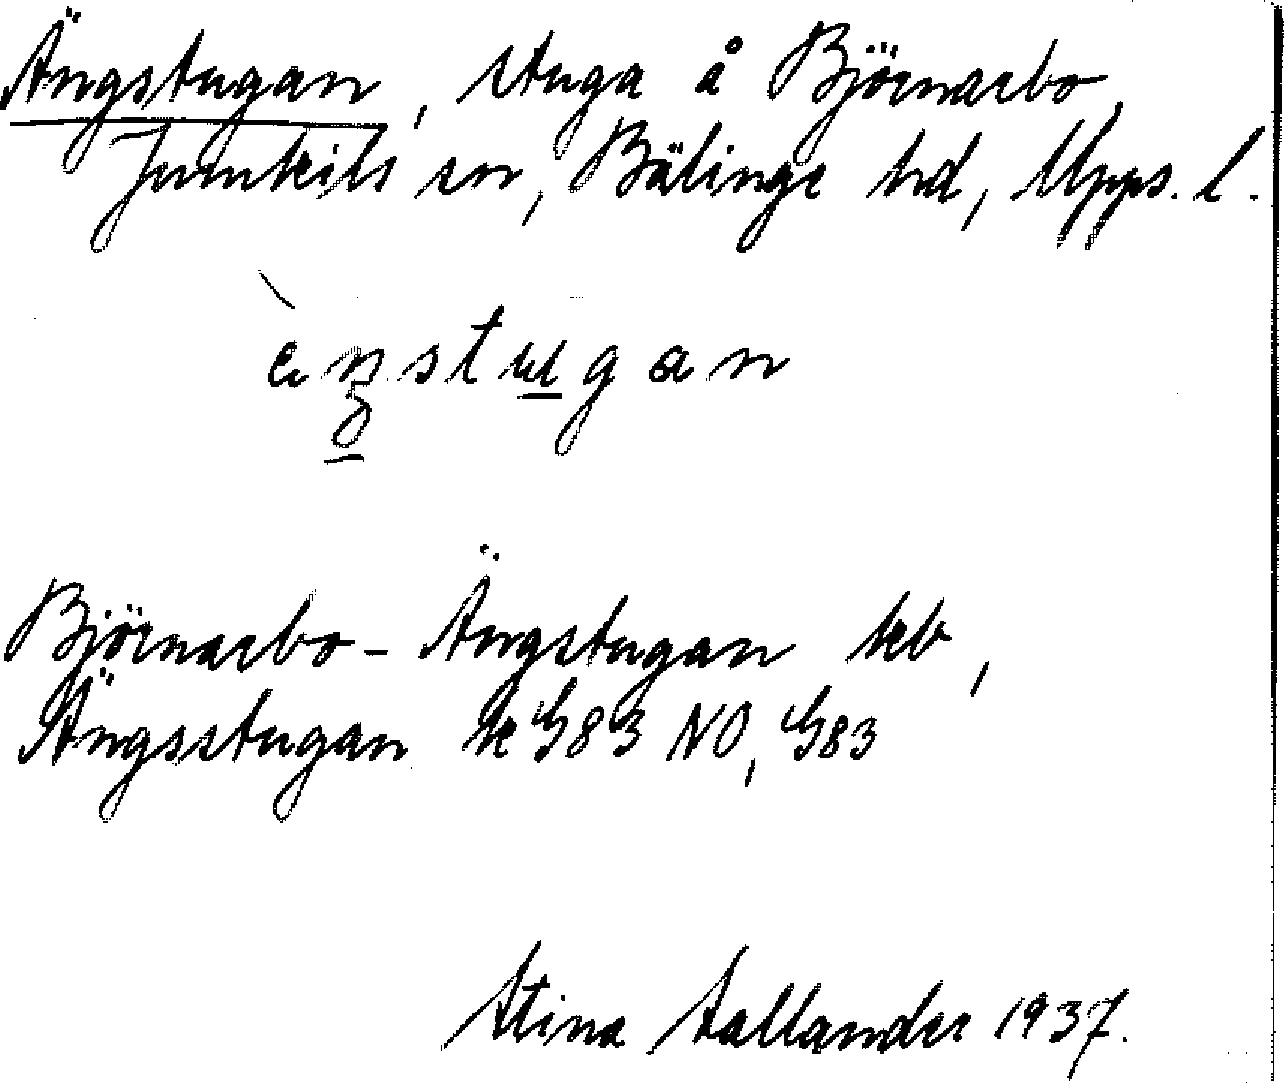 Ängstugan, stuga å Björnarbo,
Jumkils sn, Bälinge hd, Upps. l.
ὲŋstugan
Björnarbo-Ängstugan kb,
Ängsstugan k G83 NO, G83
Stina Sallander 1937.